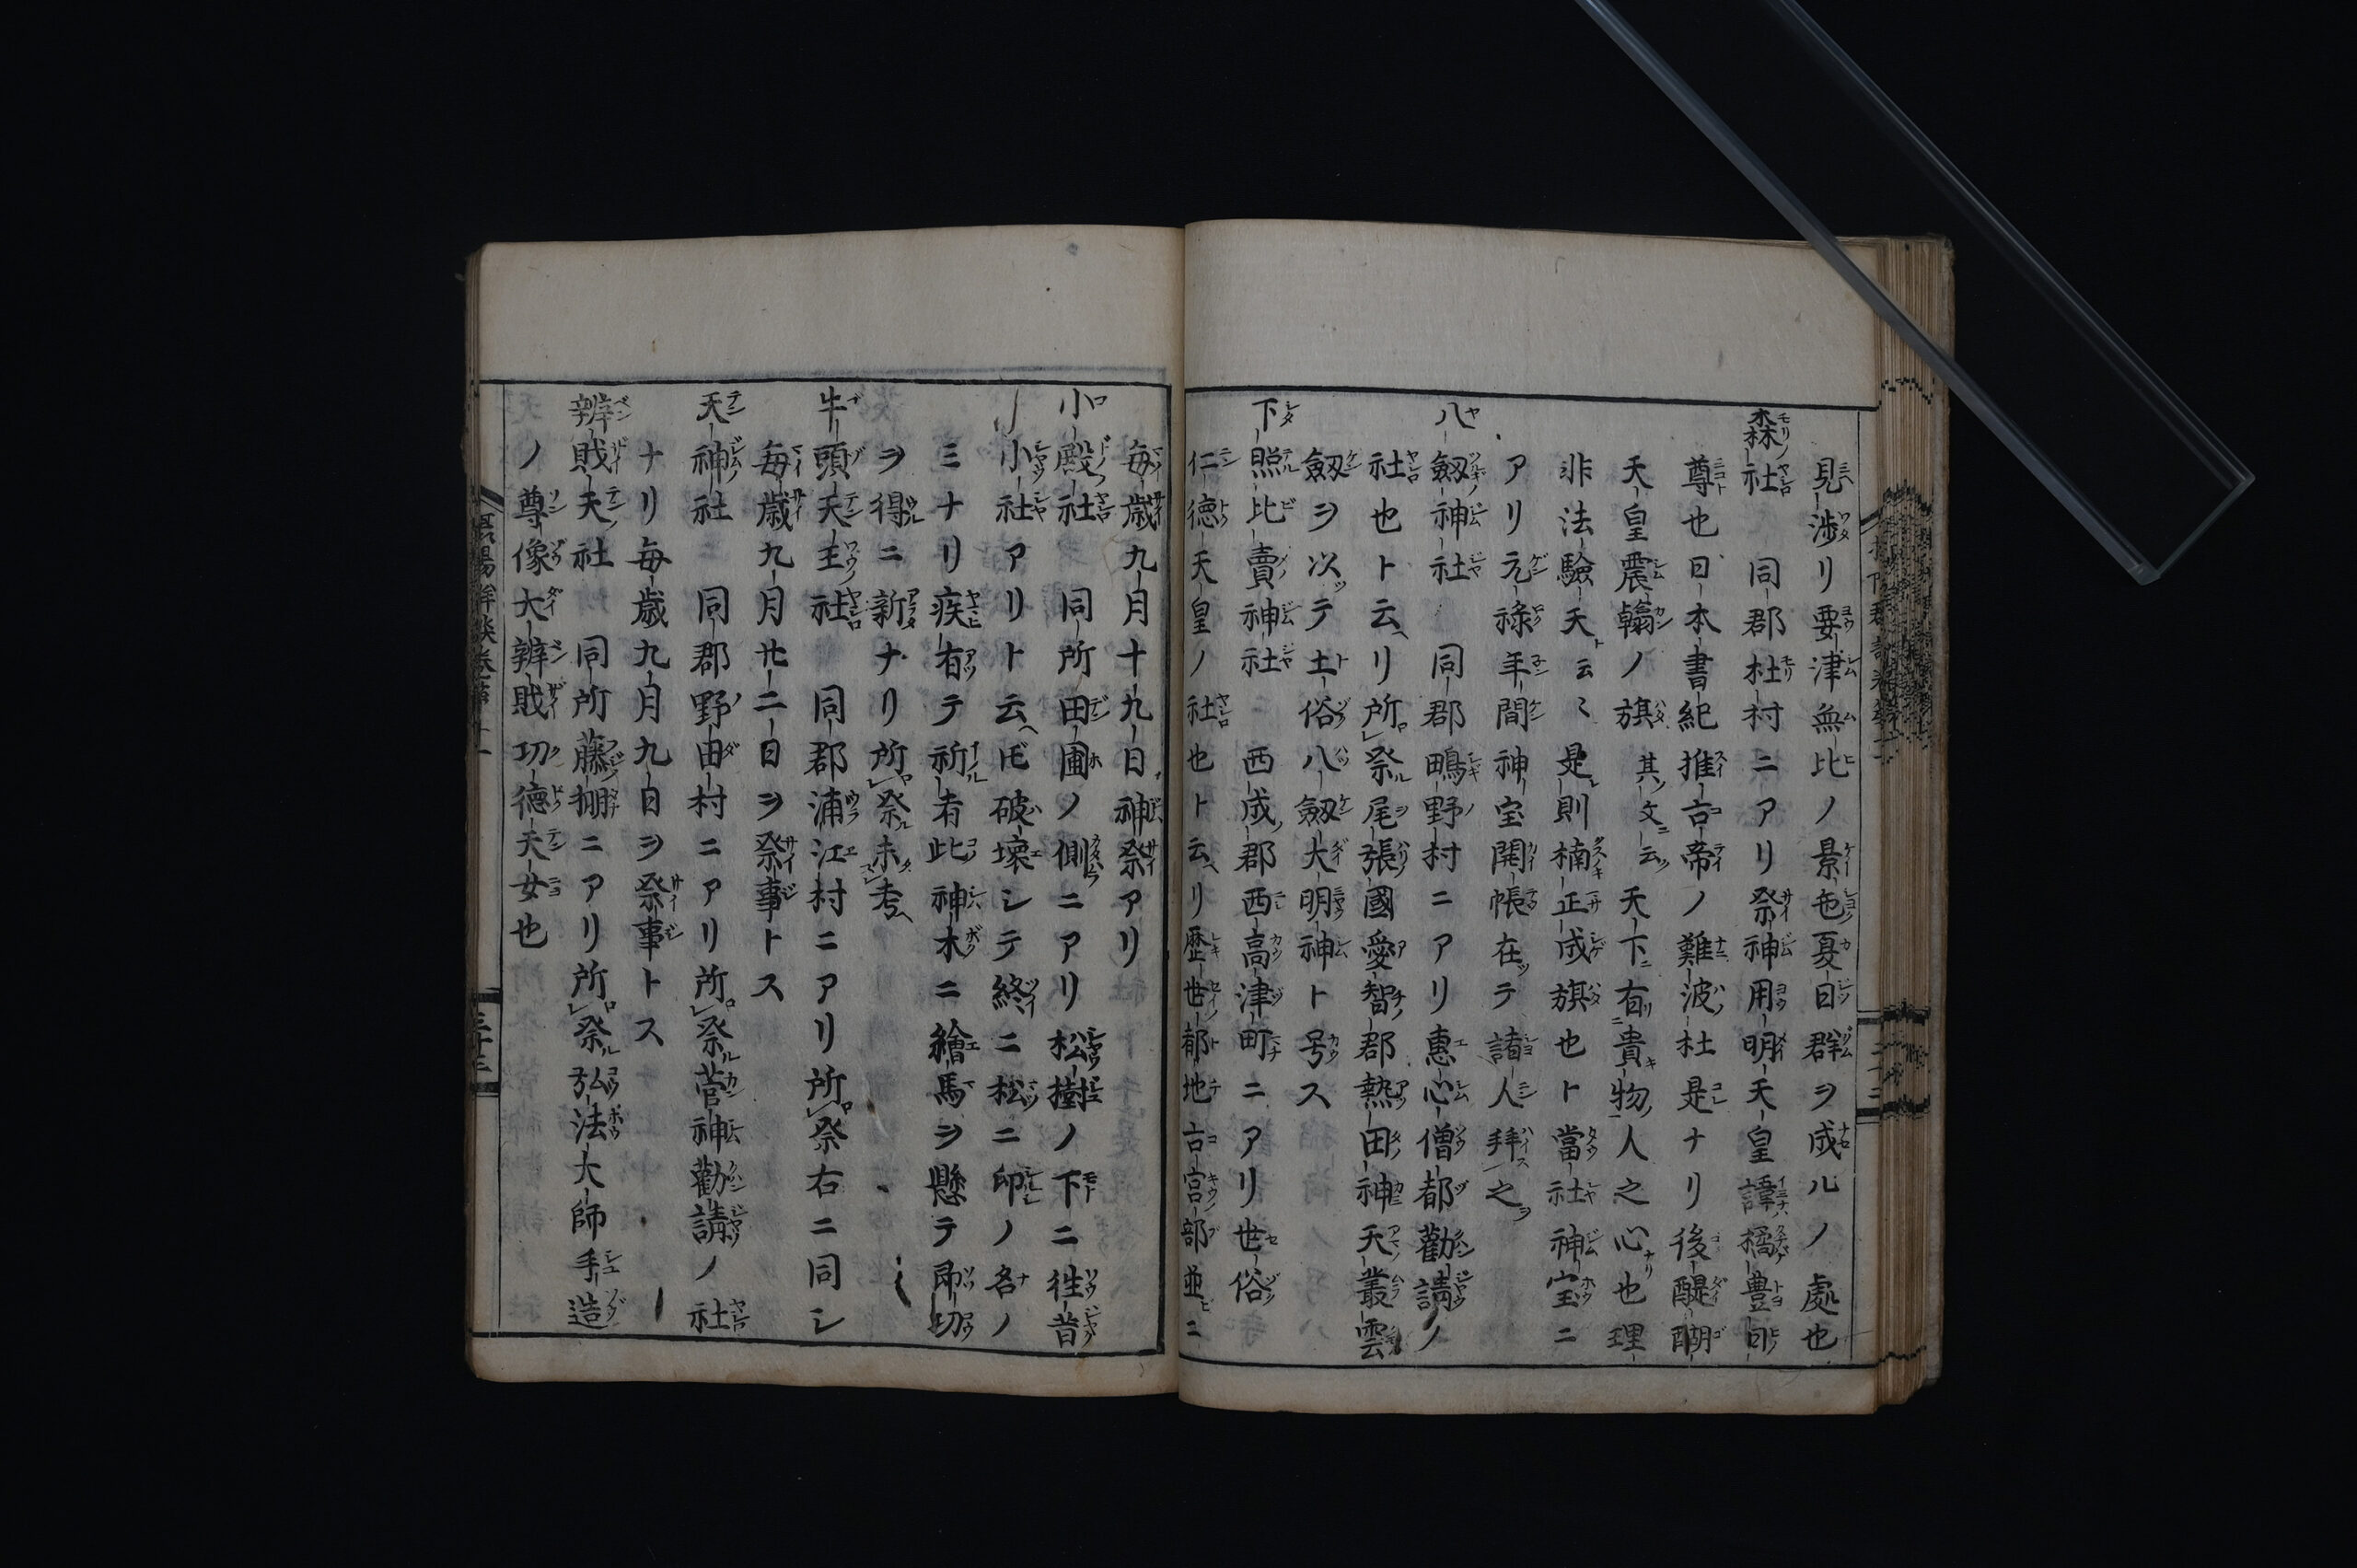 見渉リ要津無比ノ景色夏日群ヲ成ルノ處也
森社　同郡杜村ニアリ祭神用明天皇諱橘豊日
尊也日本書紀推古帝ノ難波杜是ナリ後醍醐
天皇震翰ノ旗其文云天下有貴物人之心也理
非法驗天云〻是則楠正成旗也ト當社神宝ニ
アリ元禄年間神宝開帳在テ諸人拜之
八劔神社　同郡鴫野村ニアリ惠心僧都勸請ノ
社也ト云リ所祭尾張國愛智郡熱田神天叢雲
劔ヲ以テ土俗八劔大明神ト号ス
下照比賣神社　西成郡西高津町ニアリ世俗
仁徳天皇ノ社也ト云リ歴世都地古宮部並ニ
毎歳九月十九日神祭アリ
小殿社　同所田圃ノ側ニアリ松樹ノ下ニ徃昔
小社アリト云破壊シテ終ニ松ニ印ノ名ノ
ミナリ疾有テ祈者此神木ニ繪馬ヲ懸テ即功
ヲ得ニ新ナリ所祭未考
牛頭天王社　同郡浦江村ニアリ所祭右ニ同シ
毎歳九月廿二日ヲ祭事トス
天神社　同郡野田村ニアリ所祭菅神勸請ノ社
ナリ毎歳九月九日ヲ祭事トス
辨財天社　同所藤棚ニアリ所祭弘法大師手造
ノ尊像大辨財功徳天女也